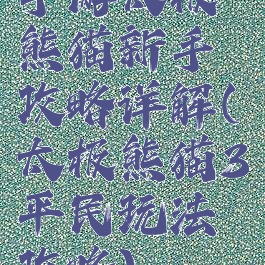 熊猫新手
攻略详解(
太极熊猫3
平民玩法
攻略)